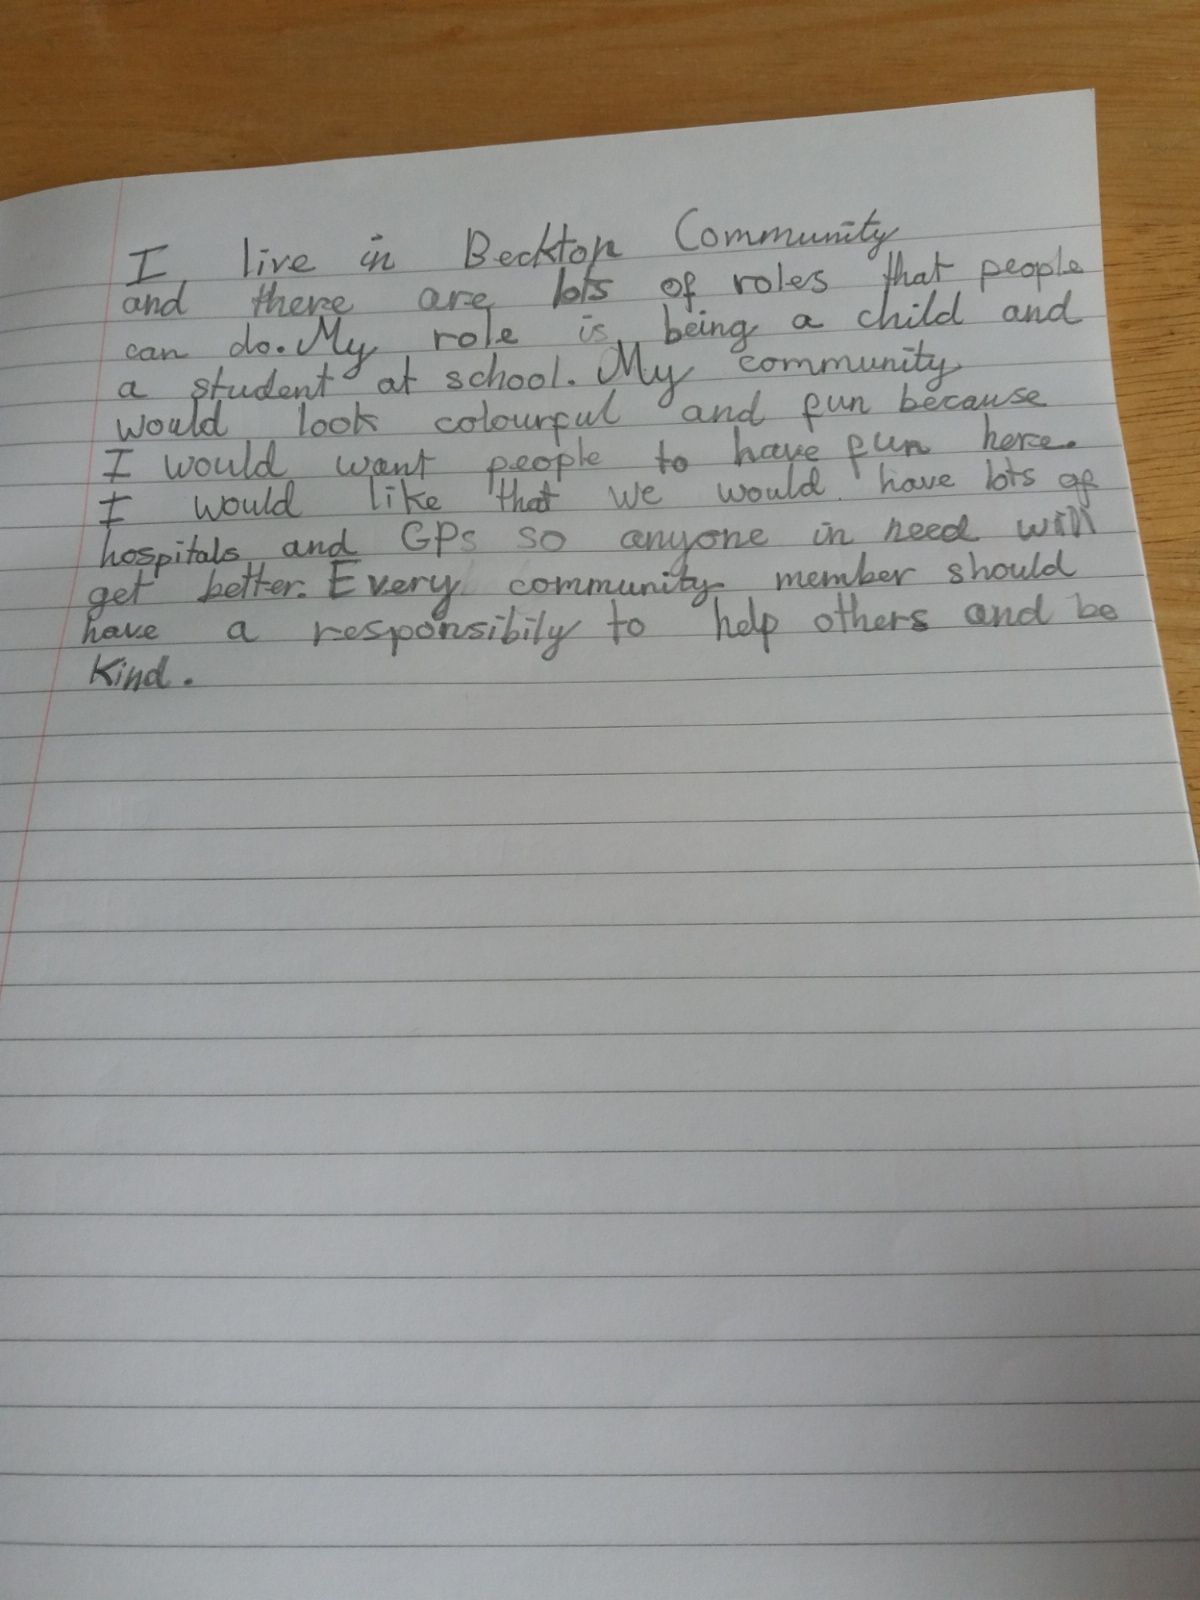 I live in Beckton Community
and there are lots of roles that people
can do. My role is being a child and
a student at school. My community
would look colourful and fun because
I would want people to have fun here.
I would like that we would have lots of
hospitals and GPs so anyone in need will
get better. Every community member should
have a responsibily to help others and be
kind.